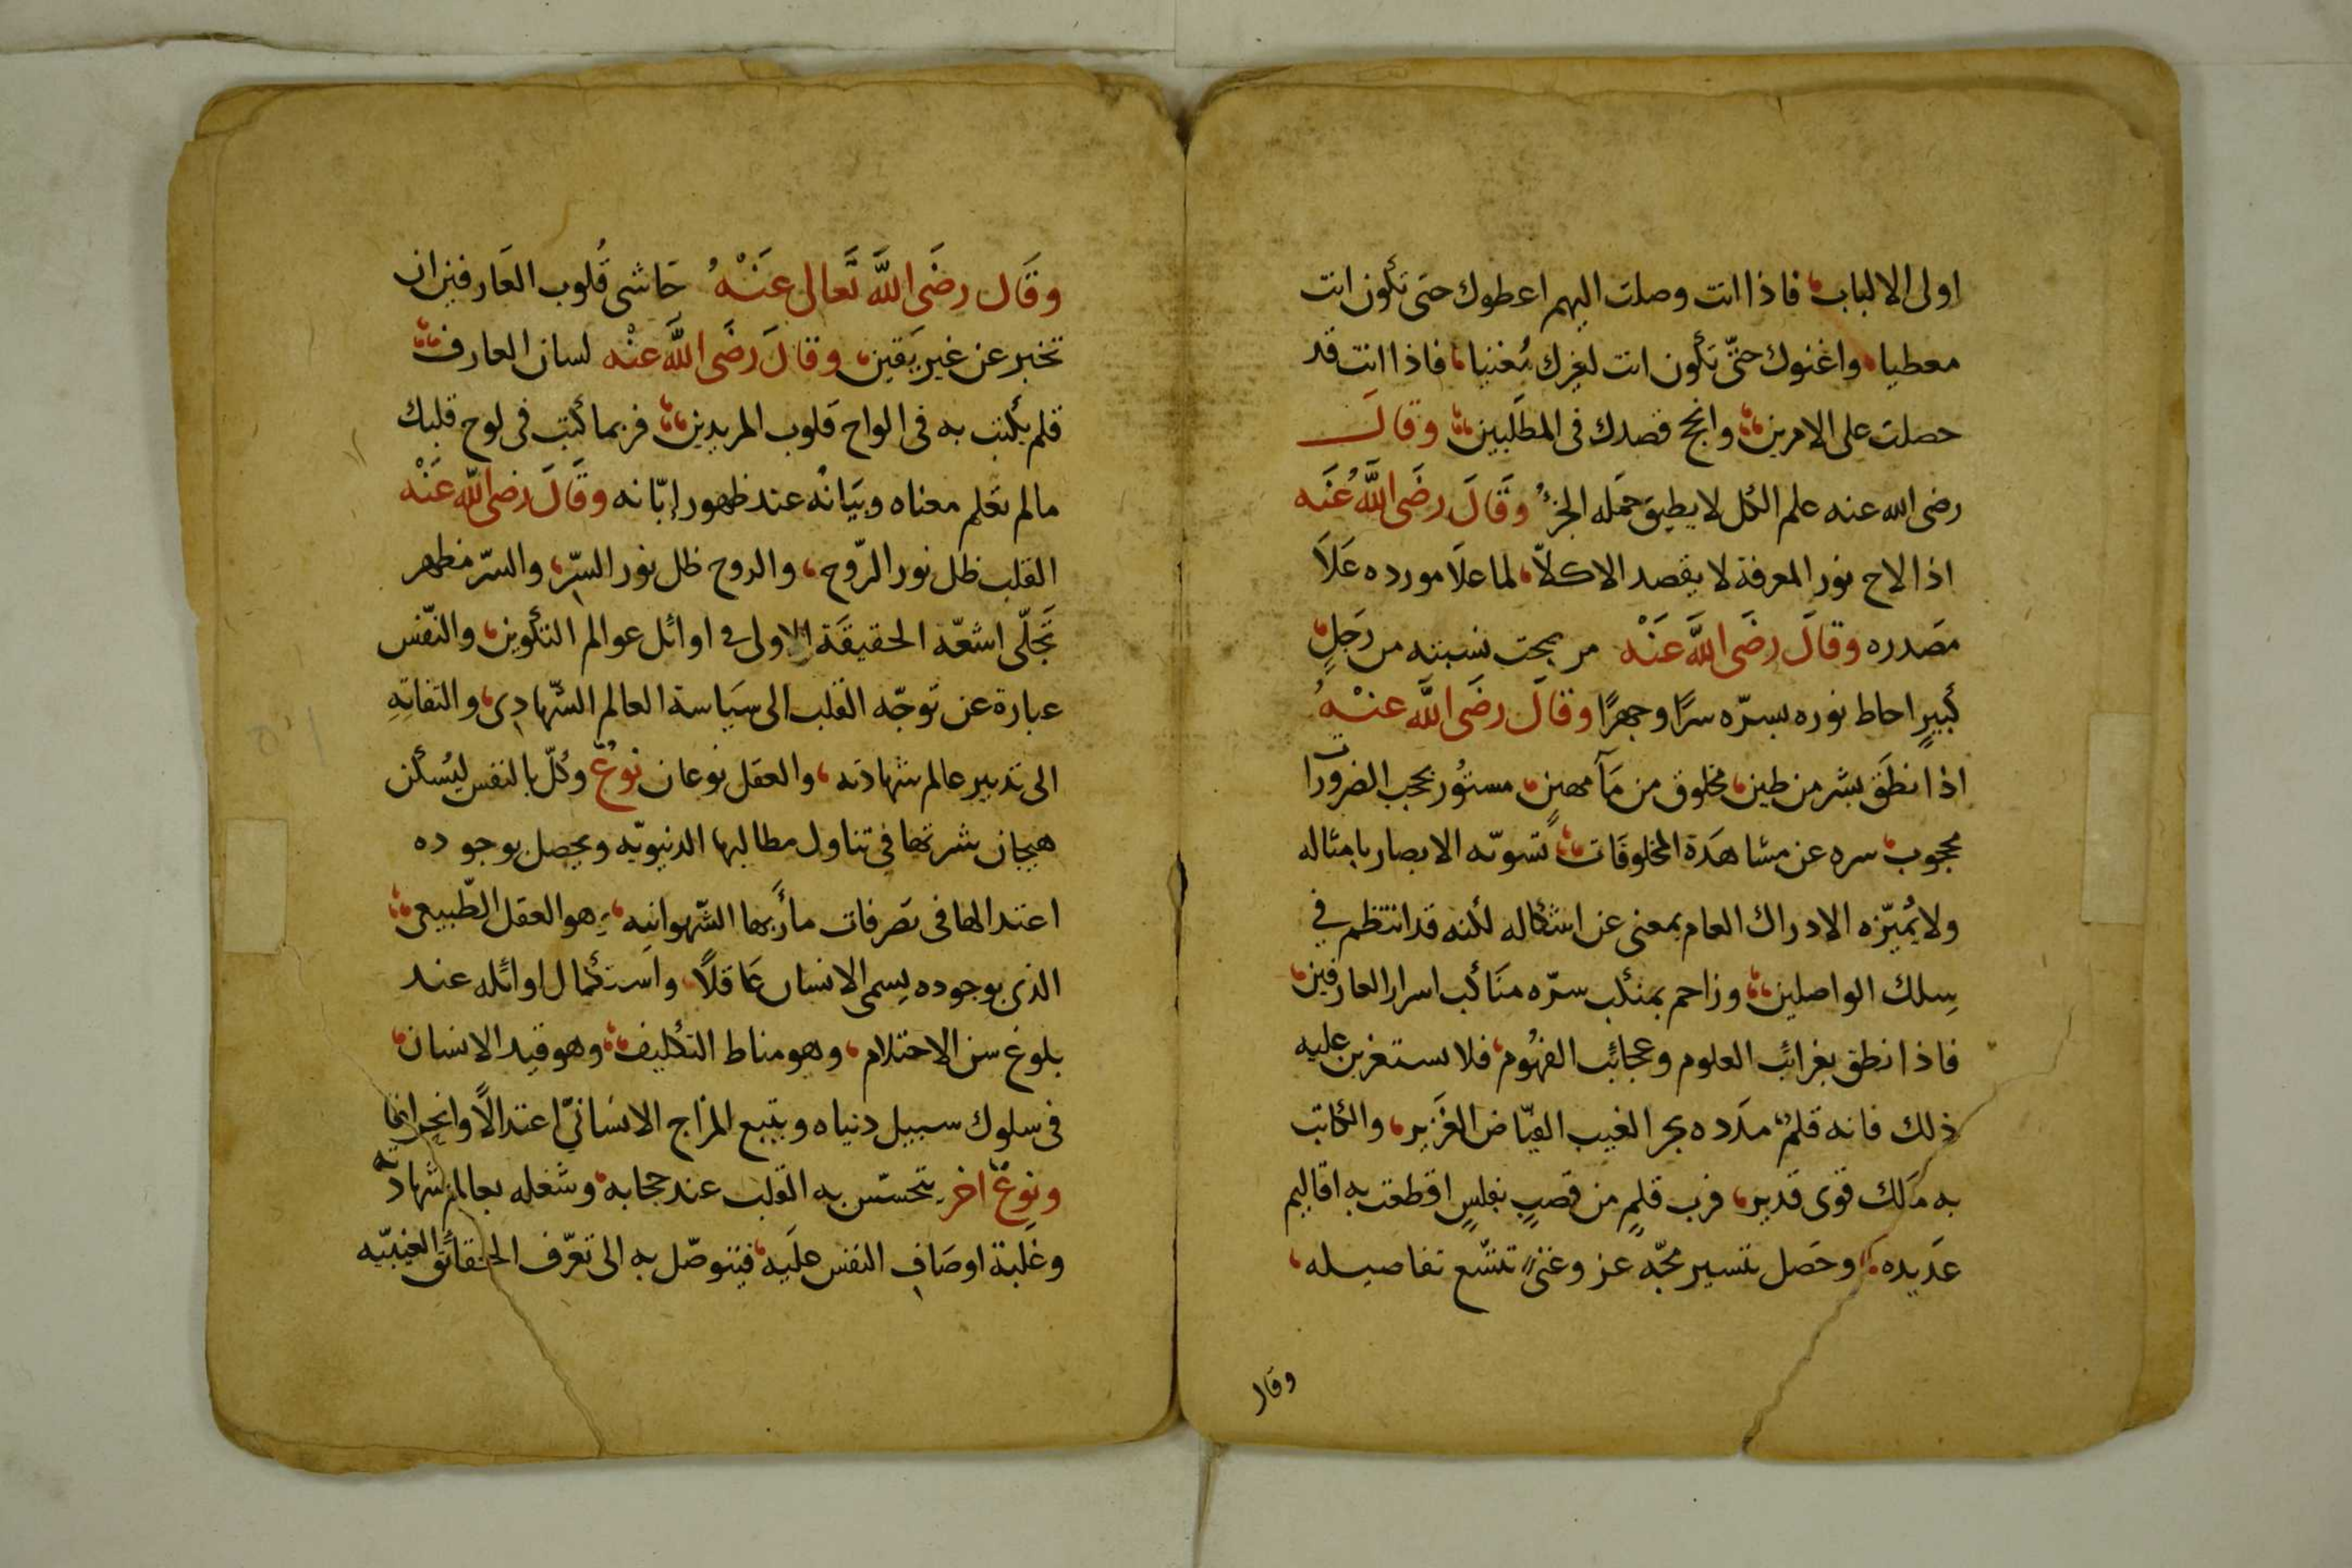 اولى الالباب فاذا انت وصلت اليهم اعطوك حتى تكون انت
معطيا واغنوك حتّى تكون انت لغيرك مُغنيا فاذا انت قد
حصلت على الامرين وانجح قصدك فى المطلَبين وقال
رضى الله عنه علم الكل لا يطيق حَمله الجزؤ وَقَالَ رضَى اللَّهُ عَنَه
اذا لاح نور المعرفة لا يقصد الا كلاّ لما علَا مورده عَلَا
مصَدره وقالَ رضَى اللَّه عَنْه من صحت نسبته من رَجَلٍ
كبيرٍ احاط نوره بسرّه سرًا وجهرًا وقالَ رضَى اللَّه عنْهُ
اذا نطَق بشر من طين مخلوق من مَآ مهينٍ مستوُر بحجب الضرورات
محجوب سره عن مشاهَدة المخلوقَات تسوّيه الابصار بامثاله
ولا يُميّزه الادراك العام بمعنى عن اشكاله لكنه قد انتظم في
سِلك الواصلين وزاحم بمنكب سرّه منَاكب اسرار العارفين
فاذا نطق بغرائب العلوم وعجائب الفهُوم فلا تستغربن عليه
ذلك فانه قلمٌ مدَده بحر الغيب الفيّاض الغَزير والكاتب
به مَلك قوى قدير فرب قلمٍ من قصبٍ بفلسٍ اقطعت به اقاليم
عَديده وحَصل بتسيير محبّه عز وغنىً تتسّع تفاصيله
وقال
وقَال رضَى اللَّه تَعالى عَنْهُ حَاشى قُلوب العَارفين ان
تخبر عن غير يَقين وقالَ رضَى اللَّه عنْه لسان العارف
قلم يكتب به فى الواح قلوب المريدين فربما كتب فى لوح قلبك
مالم تعَلم معناه وبيَانُه عند ظهور إبّانه وقَالَ رضى اللَّه عَنْه
القلب ظل نور الرّوح والروح ظل نور السّرِ والسّر مظهر
تَجلّى اشعّة الحقيقَة الاولى في اوائل عوالم التكوين والنّفس
عبارة عن توَجّه القلب الى سيَاسة العالم الشّهادِى والتفاتِهِ
الى تدبير عالم شهادته والعقل نوعان نوعٌ وكّل بالنفس ليُسكن
هيجان شرتها فى تناول مطالبها الدنيويّه ويحصل بوجوده
اعتدالها فى تصَرفات مأربها الشّهوانيه هو العقل الطّبيعى
الذى بوجوده يسمى الانسان عَاقلًا واستكمال اوائله عند
بلوغ سن الاحتلام وهو مناط التكليف وهو قيد الانسان
فى سلوك سبيل دنياه ويتبع المزاج الانسَانيّ اعتدالًا وانحرافا
ونوعٌ اخر يتحسّس به القلب عند حجابه وشغله بعالم شهادته
وغلبة اوصَاف النفس علَيه فيتوصّل به الى تعرّف الحقائق الغيبيّه